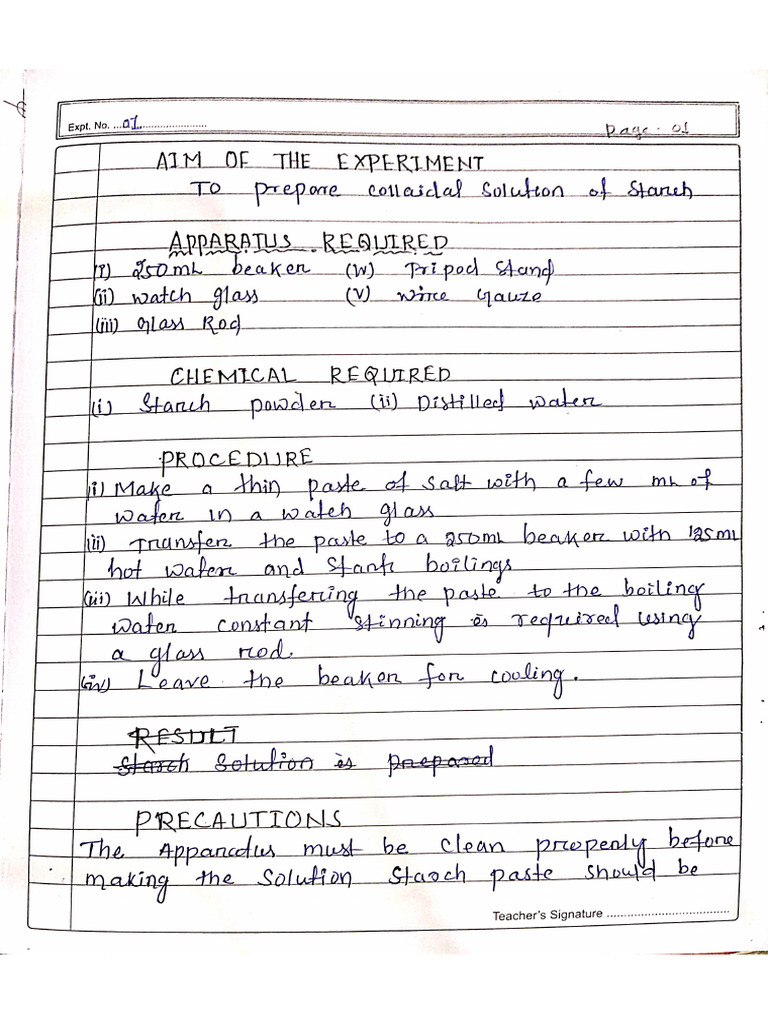 Expt. No. ...01........................
Page - 01
AIM OF THE EXPERIMENT
TO prepare collaidal solution of Starch
APPARATUS REQUIRED
(i) 250mL beaker (iv) Tripod Stand
(ii) watch glass (v) wire Gauze
(iii) Glass Rod
CHEMICAL REQUIRED
(i) Starch powder (ii) Distilled water
PROCEDURE
(i) Make a thin paste of Salt with a few mL of
water in a watch glass
(ii) Transfer the paste to a 250ml beaker with 125ml
hot water and Start boilings
(iii) While transferring the paste to the boiling
water constant stirring is required using
a glass rod.
(iv) Leave the beaker for cooling.
RESULT
Starch Solution is prepared
PRECAUTIONS
The Apparatus must be clean properly before
making the solution Starch paste should be
Teacher's Signature ....................................